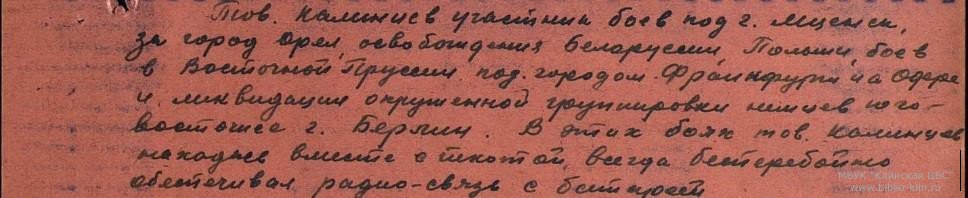 Тов. Калинцев участник боев под г. Мценск,
за город Орел, освобождения Беларуссии, Польши, боев
в Восточной Пруссии, под городом Франкфурт на Одере
и ликвидации окруженной группировки немцев юго-
восточнее г. Берлин. В этих боях тов. Калинцев
находясь вместе с пехотой, всегда бесперебойно
обеспечивал радио-связь с батареей
МБУК "Клинская ЦБС"
www.biblio-klin.ru